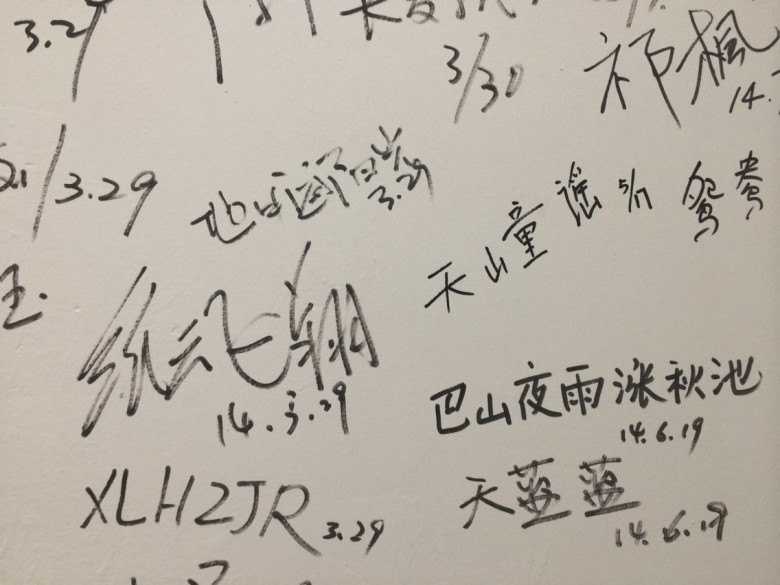 3.29
3/30
祁枫
14.
/3.29
3.29
天山童谣 5/17
鸳鸯
王.
纵云飞翔
14.3.29
巴山夜雨涨秋池
14.6.19
XLHZJR 3.29
天蓝蓝
14.6.19